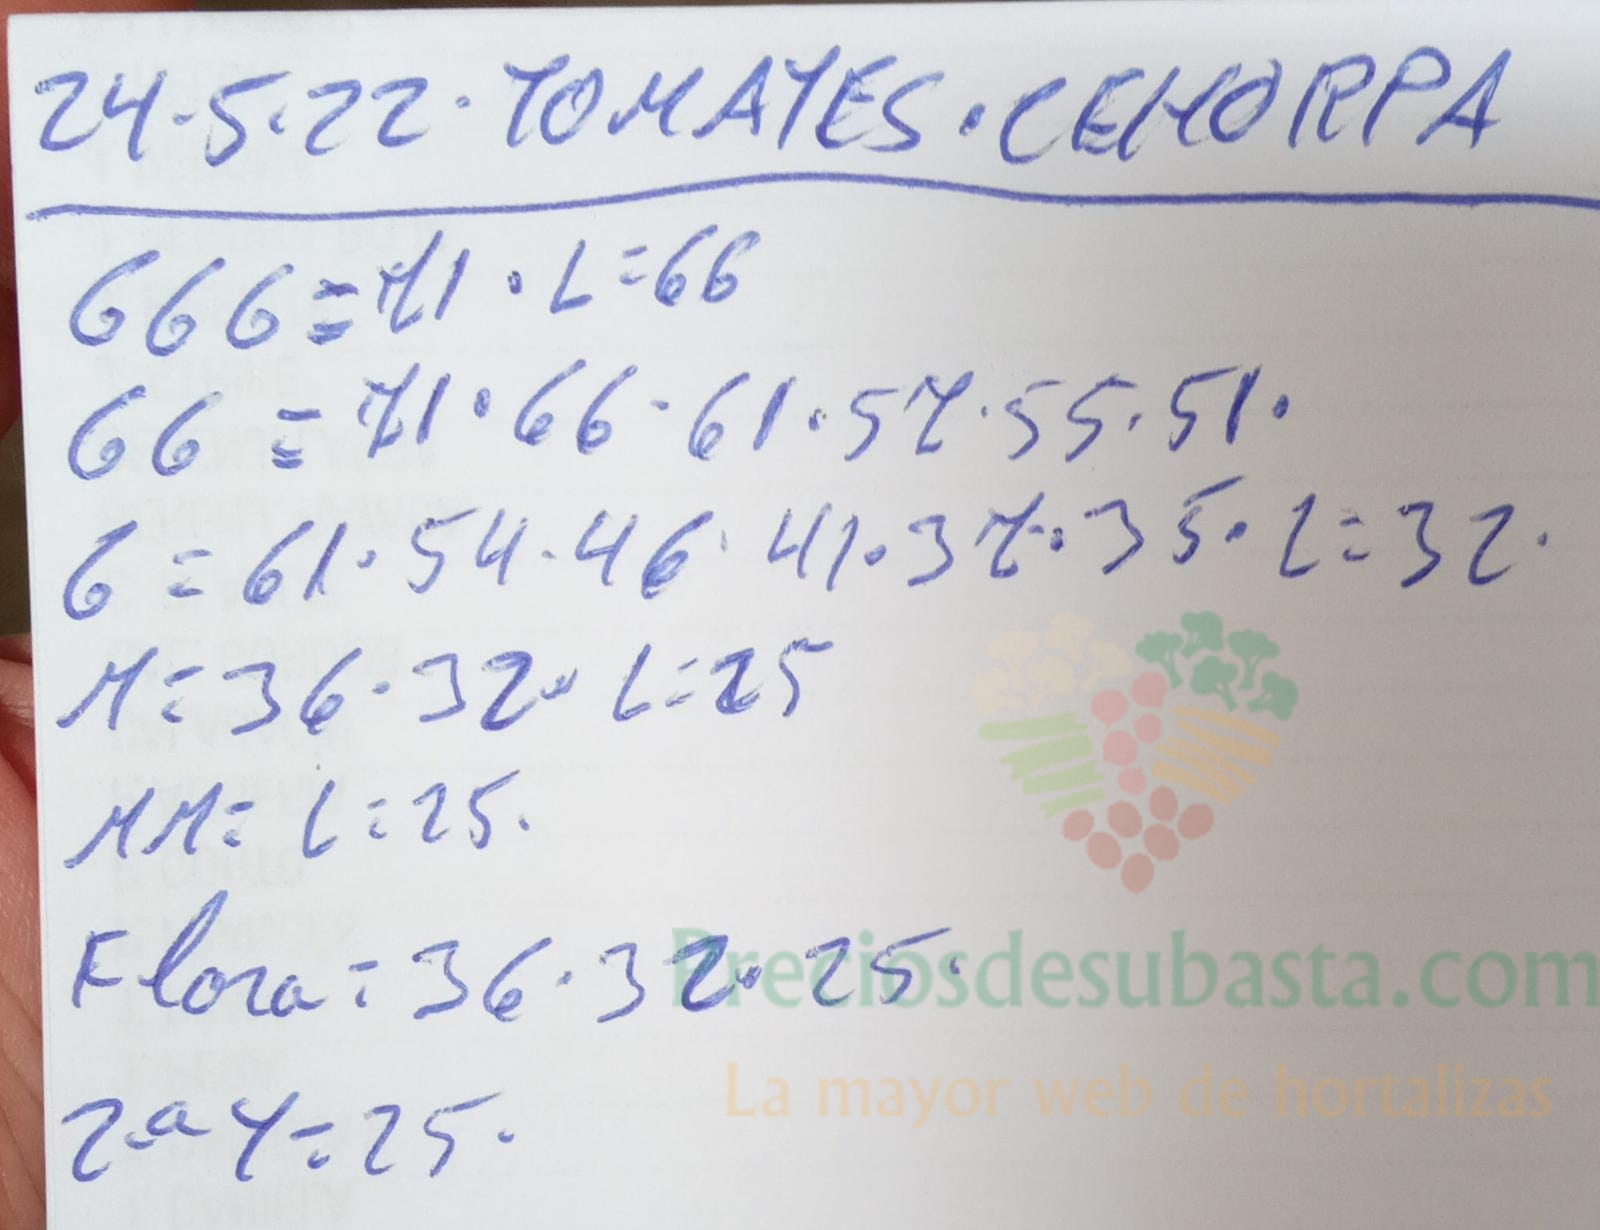 24.5.22. TOMATES. CEHORPA
GGG = 71. L=66
GG = 71.66.61.57.55.51.
G = 61.54.46.41.37.35. L=32.
M = 36.32. L=25
MM = L=25.
Flora = 36.32.25.
Preciosdesubasta.com
La mayor web de hortalizas
2ª Y = 25.